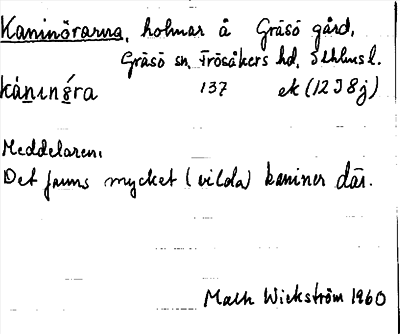 Kaninörarna, holmar å Gräsö gård,
Gräsö sn, Frösåkers hd, Sthlms l.
kánınǵ̈ra 137 ek (12 I 8 j)
Meddelaren:
Det fanns mycket (vilda) kaniner där.
Math Wickström 1960